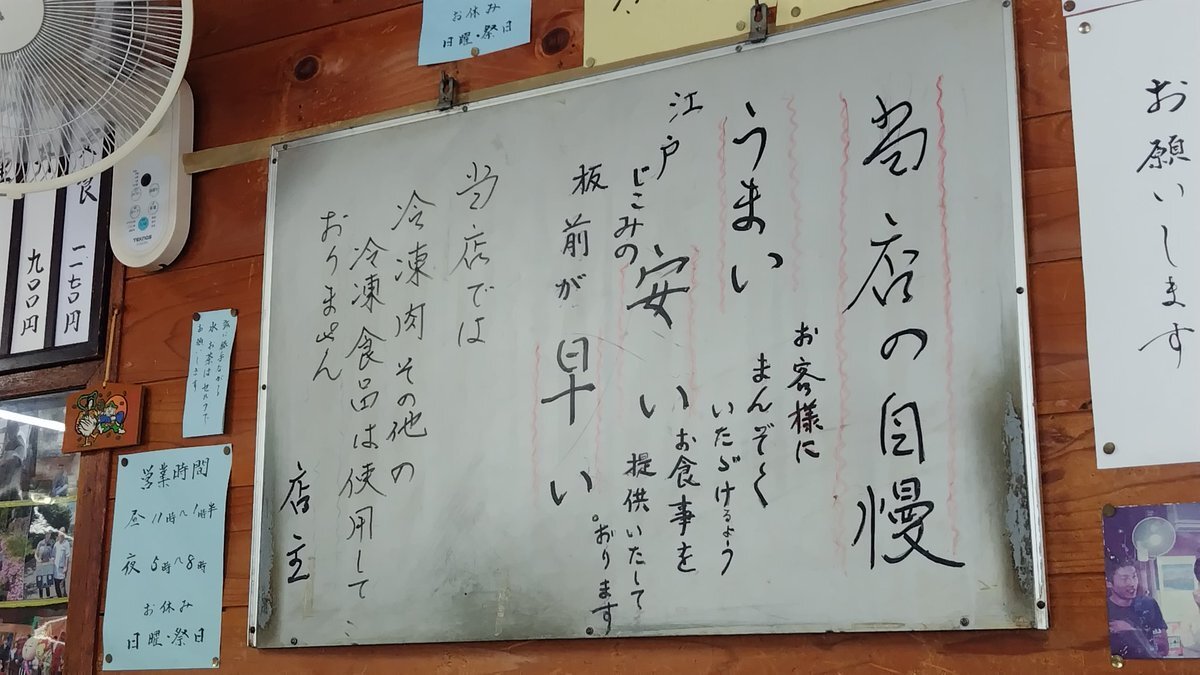 当店の自慢
お客様に
まんぞく
いただけるよう
お食事を
提供いたして
おります。
うまい
安い
早い
江戸
じこみの
板前が
当店では
冷凍肉その他の
冷凍食品は使用して
おりません
店主
お願いします
お休み
日曜・祭日
九〇〇円
TEKNOS
水お茶はセルフで
お願いします
営業時間
昼 11時〜1時半
夜 5時〜8時
お休み
日曜・祭日